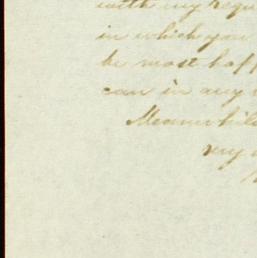 with my requ
in which you
be most happ
can in any
Meanwhile
my